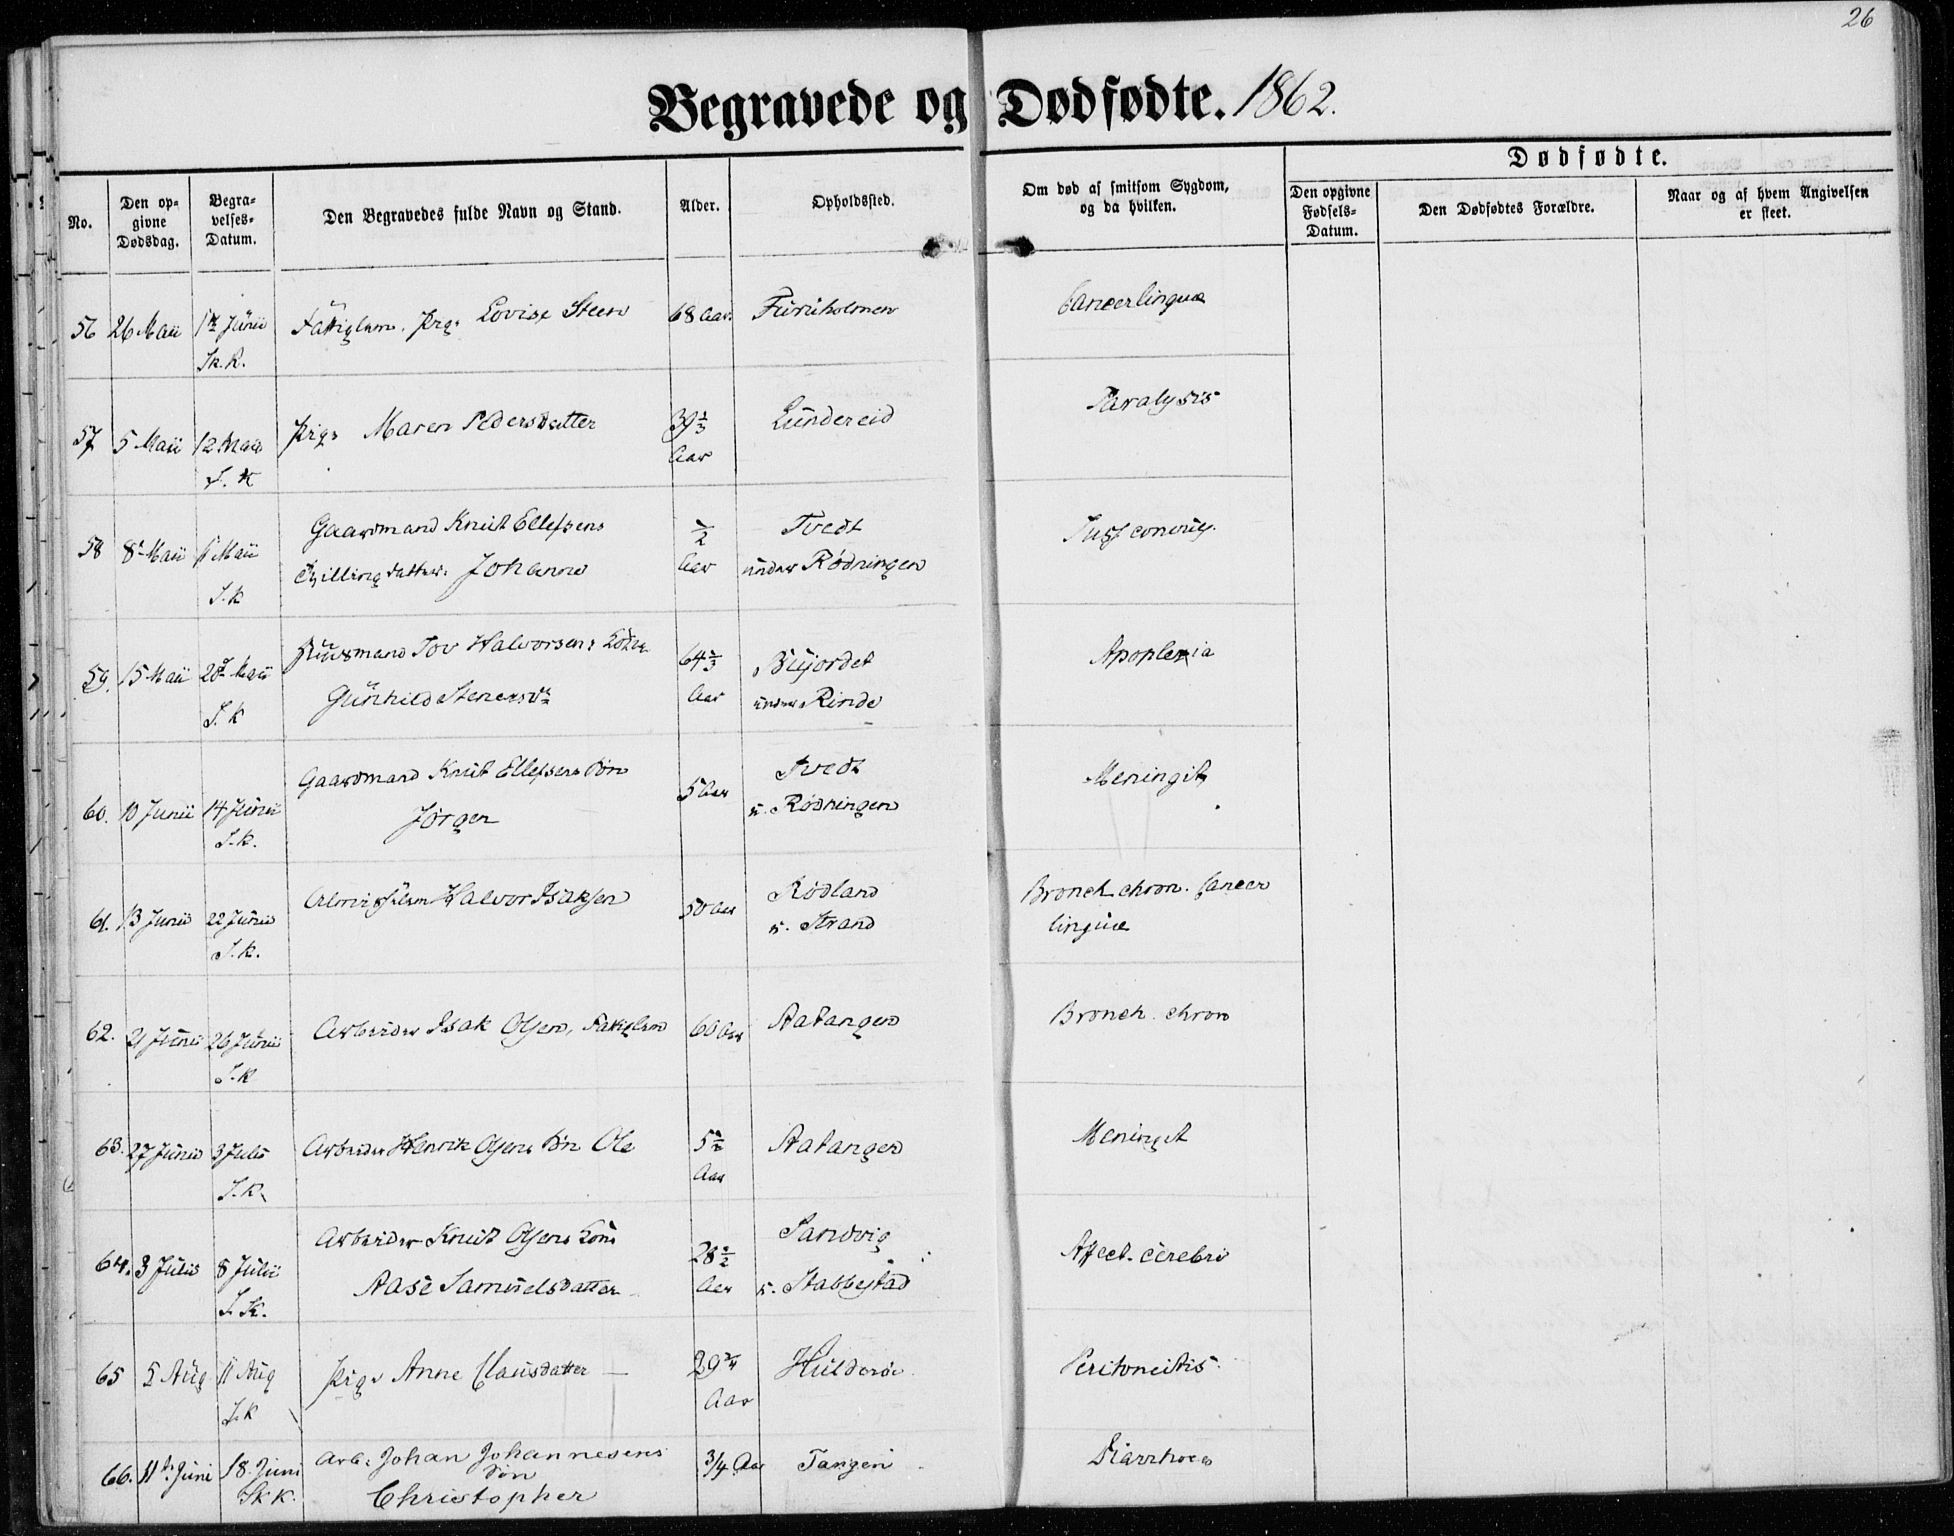 26
Begravede og Dødfødte. 1862.
No.
Den opgivne Dødsdag.
Begravelses-Datum.
Den Begravedes fulde Navn og Stand.
Alder.
Opholdssted.
Om død af smitsom Sygdom, og da hvilken.
Dødfødte.
Den opgivne Fødsels-Datum.
Den Dødfødtes Forældre.
Naar og af hvem Angivelsen er skeet.
56 26 Maii 1ste Junii Fattiglem. Pige Lovise Steen 68 Aar. Furuholmen Cancer linguæ
Sk.K.
57 5 Maii 12 Maii Pige Maren Pedersdatter 39 1/3 Lundereid Paralysis
S. K Aar
58 8 Maii 11 Maii Gaardmand Knut Ellefsens 1/2 Tvedt Tuss convuls.
Tvillingdatter Johanne Aar under Rødningen
S.K
59. 15 Maii 20 Maii Huusmand Tov Halvorsens Kone 64 1/3 Bujordet Apoplexia
S.K Gunhild Stenersdr Aar under Rinde
60. 10 Junii 14 Junii Gaardmand Knut Ellefsens Søn 5 Aar Tvedt Meningit
S.K. Jørgen u. Rødningen
61. 13 Junii 22 Junii Halvor Isaksen 50 Aar Rødland Bronch chron. Cancer
S.K. u. Strand linguæ
62. 21 Junii 26 Junii Arbeider Isak Olsen, Fattiglem 60 Aar Aatangen Bronch. chron
S.K
63. 27 Junii 3 Julii Arbeider Henrik Olsens Søn Ole 5 1/2 Aatangen Meningit
S.K. Aar
64. 3 Julii 8 Julii Arbeider Knut Olsens Kone 28 1/2 Sandvig Affect. cerebri
S.K. Aase Samuelsdatter Aar u. Stabbestad
65 5 Aug 11 Aug Pige Anne Clausdatter 29 3/4 Hulderøe Peritoneitis
S.K Aar
66. 11te Juni 18. Juni Arb. Johan Johannesens 3/4 Aar Tangen Diarrhoea
Sk K. Søn
Christopher